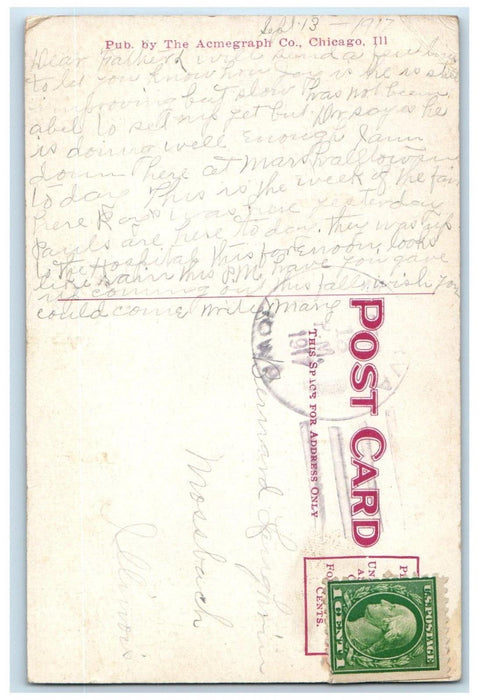 Sept. 13 - 1917
Pub. by The Acmegraph Co., Chicago, Ill
Dear Father I will send a few lines
to let you know how is he is still
improving but slow has not been
able to set up yet but Dr. says he
is doing well enough I am
down there at Marshalltown
to day This is the week of the fair
here was here yesterday
Pauls are here to day. they was up
to the Hospital this forenoon, looks
like rain this P.M. have you gave
up coming out this fall, wish you
could come write Mary
IOWA
1917
POST CARD
THIS SPACE FOR ADDRESS ONLY
Bernard
Mossbach
Illinois
U.S. POSTAGE
1 CENT 1